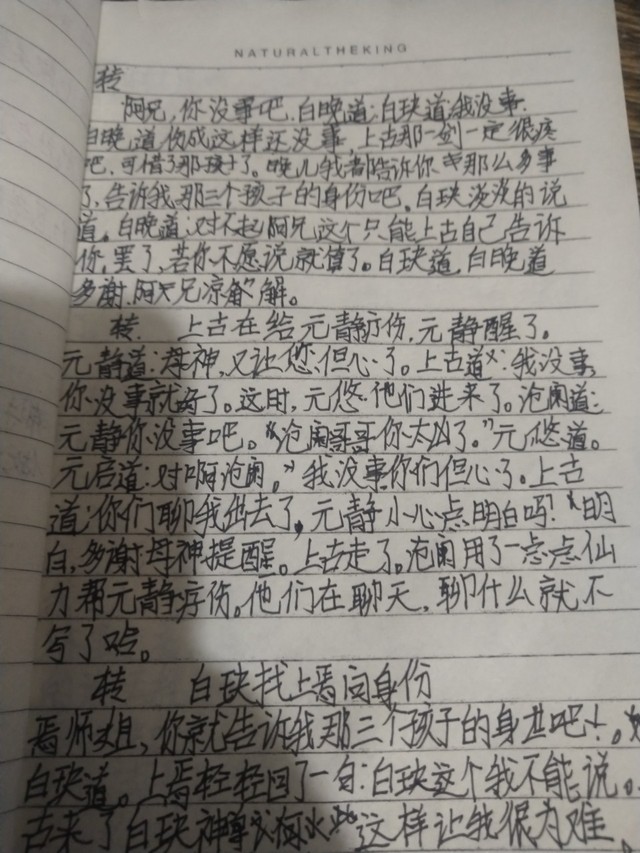 NATURALTHEKING
转
阿兄,你没事吧,白晚道:白玦道,我没事,
白晚道伤成这样还没事,上古那一剑一定很疼
吧,可惜了那孩子了。晚儿我都告诉你那么多事
了,告诉我那三个孩子的身份吧。白玦淡淡的说
道。白晚道:对不起阿兄这个只能上古自己告诉
你,罢了,若你不愿说就算了。白玦道,白晚道
多谢,阿兄凉解。
转 上古在给元静疗伤,元静醒了。
元静道:母神,又让您但心了。上古道:我没事,
你没事就好了。这时,元悠他们进来了。沧阑道:
元静你没事吧。“沧阑哥哥你太凶了。”元悠道。
元启道:对啊沧阑。”我没事你们但心了。上古
道:你们聊我出去了,元静小心点明白吗?“明
白,多谢母神提醒。上古走了。沧阑用了一点点仙
力帮元静疗伤。他们在聊天,聊什么就不
写了哈。
转 白玦找上焉问身份
焉师姐,你就告诉我那三个孩子的身世吧!。
白玦道。上焉轻轻回了一句:白玦这个我不能说。
古来了白玦神尊 这样让我很为难。